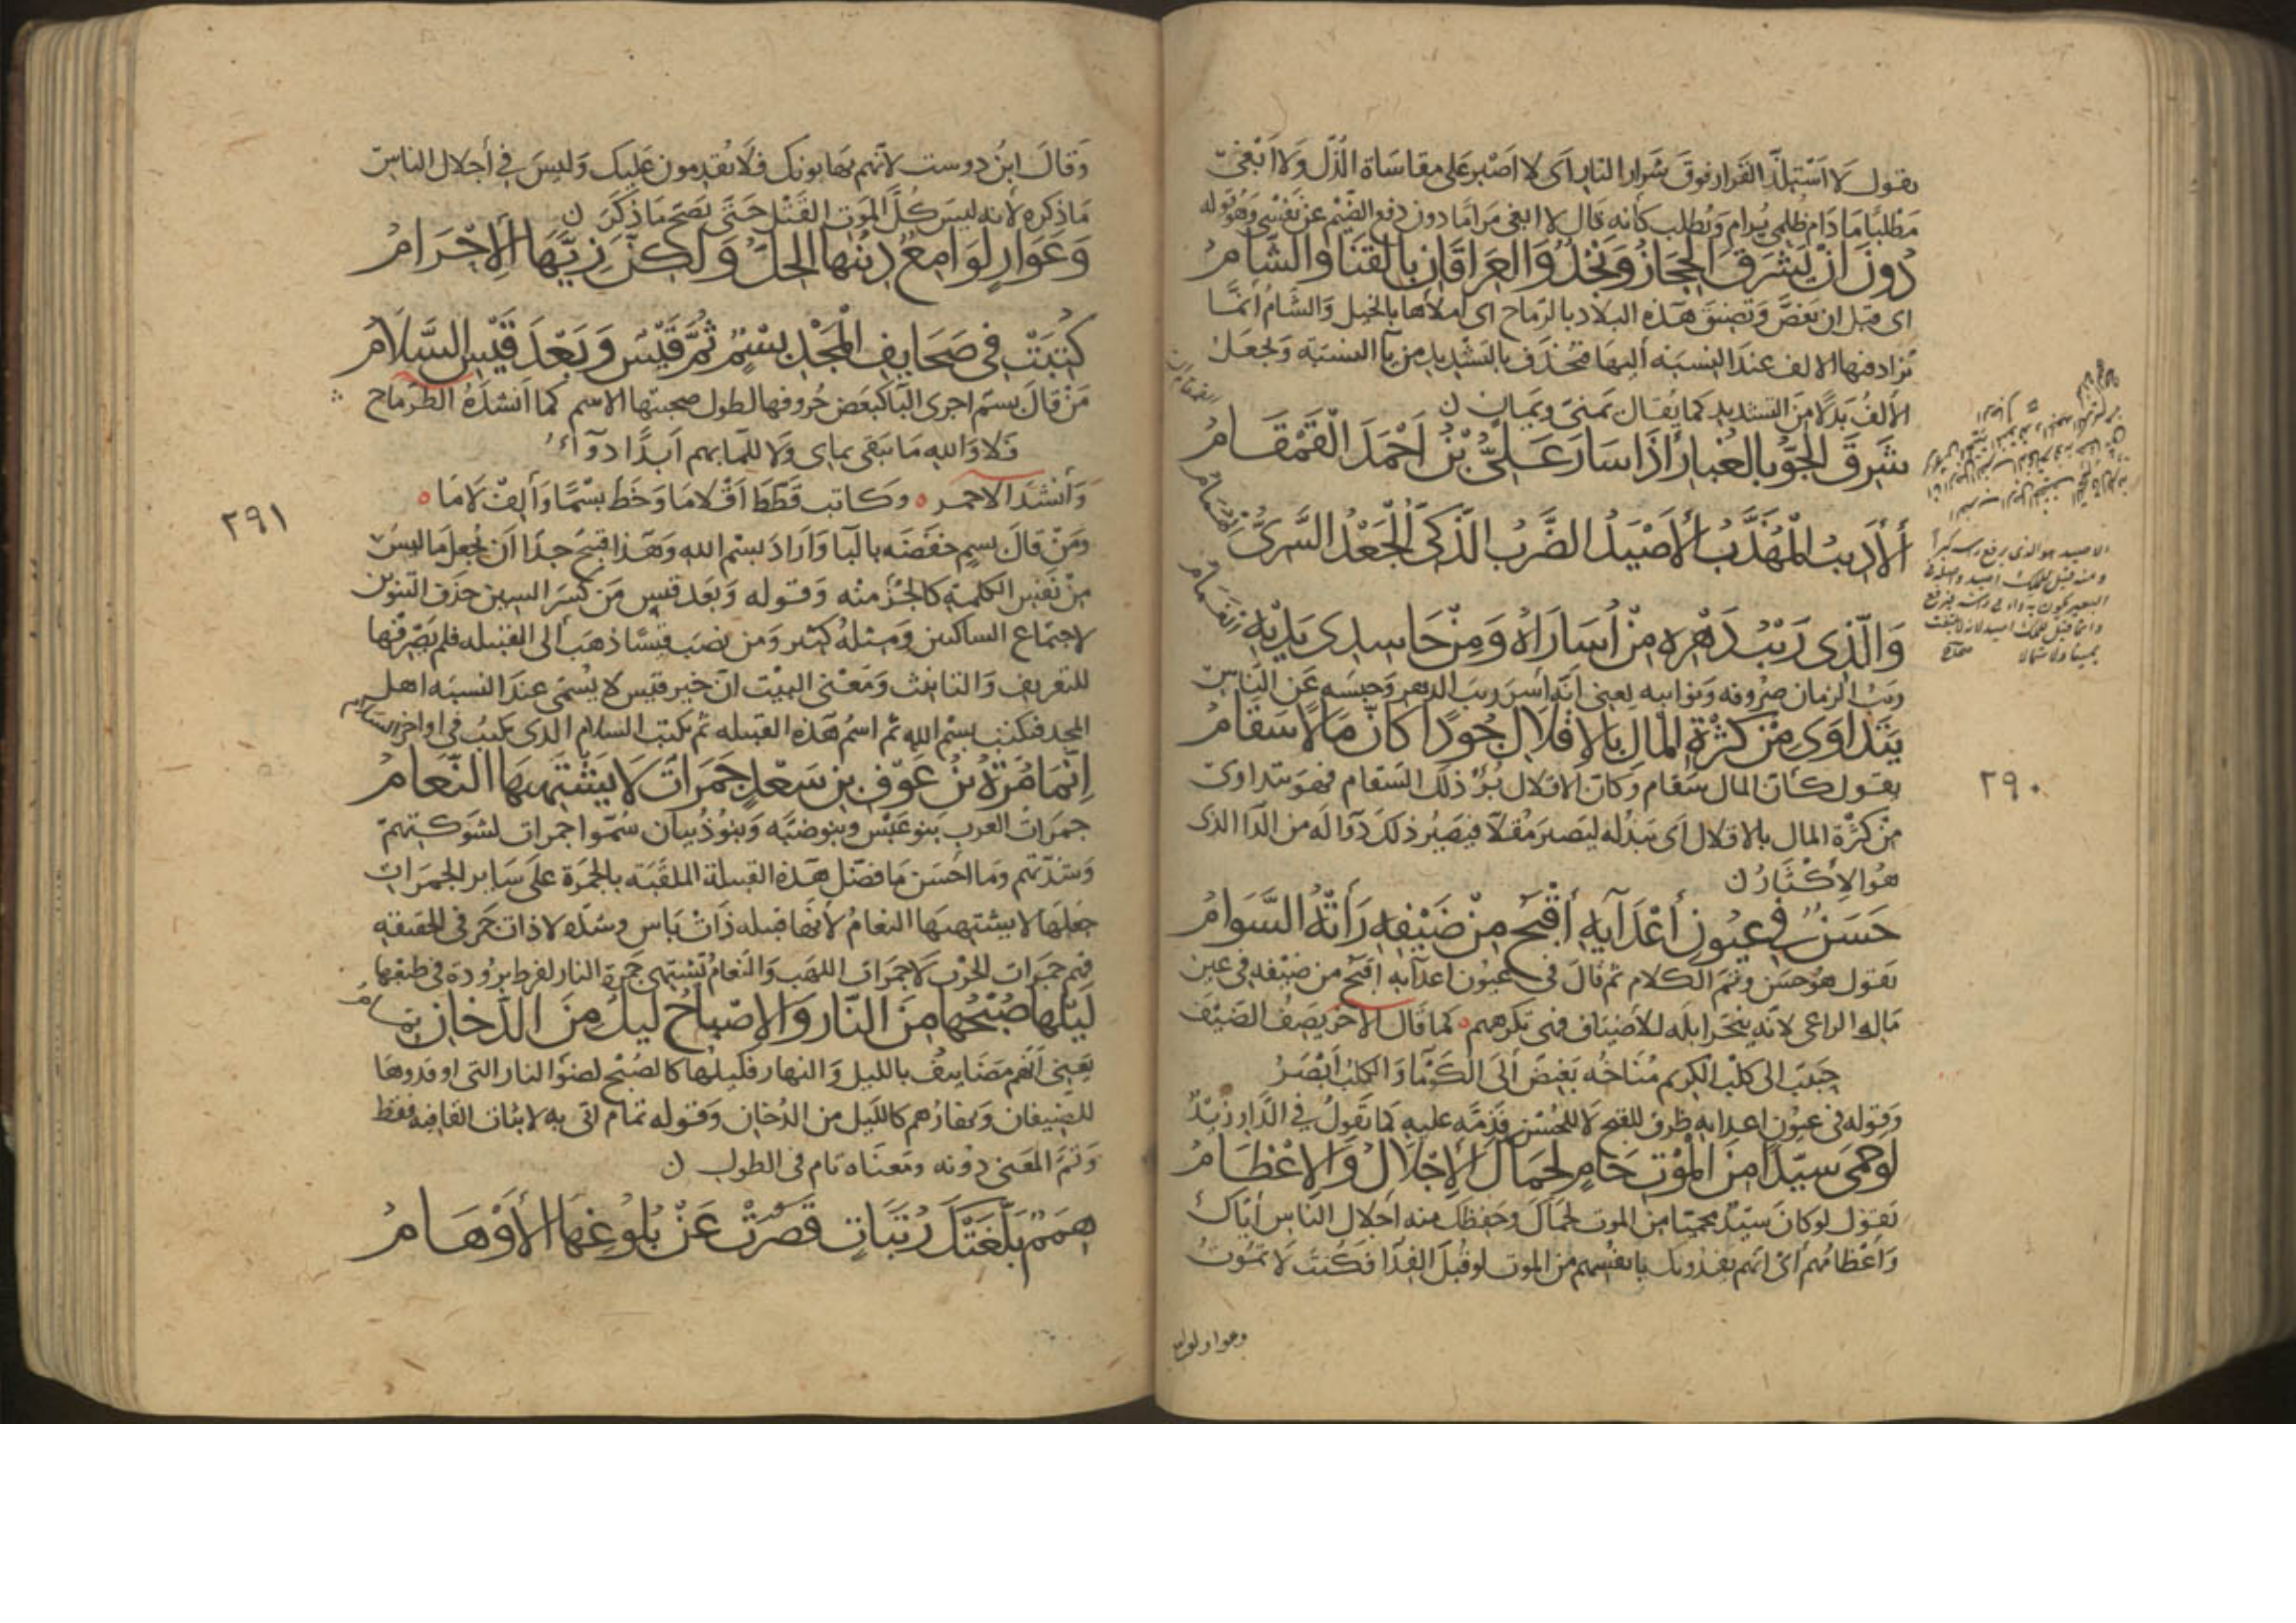 يقول لا استلذ القرار فوق شرار النار اى لا اصبر على مقاساة الذل ولا ابغى
مطلبا ما دام ظلمى يرام ويطلب كانه قال لا ابغى مراما دون دفع الضيم عن نفسى وهو قوله
دُونَ اَنْ يَشْرَقَ الحِجَازُ وَنَجْدٌ وَالعِرَاقَانِ بِالقَنَا وَالشَّامُ
اى قبل ان يغص وتضيق هذه البلاد بالرماح اى املأها بالخيل والشام انما
تزاد فيها الالف عند النسبة اليها فتحذف بالتشديد من يا النسبة وتجعل
الالف بدلا من التشديد كما يقال يمنى ويمان ن
شَرَقَ الجَوِّ بِالغُبَارِ اِذَا سَارَ عَلِىُّ بْنُ اَحْمَدَ القَمْقَامُ
اَلأَدِيبُ المُهَذَّبُ الأَصْيَدُ الضَّرْبُ الذَّكِىُّ الجَعْدُ السَّرِىُّ الهُمَامُ
وَالَّذِى رَيْبُ دَهْرِهِ مِنْ اُسَارَاهُ وَمِنْ حَاسِدِى يَدَيْهِ الغَمَامُ
وريب الزمان صروفه ونوائبه يعنى انه اسر ريب الدهر وحبسه عن الناس
يَتَدَاوَى مِنْ كَثْرَةِ المَالِ بِالاِقْلَالِ جُودًا كَاَنَّ مَالًا سَقَامُ
يقول كان المال سقام وكان الاقلال برؤ ذلك السقام فهو يتداوى
من كثرة المال بالاقلال اى يبذله ليصير مقلا فيصير ذلك دوا له من الدا الذى
هو الاكثار ن
حَسَنٌ فِى عُيُونِ أَعْدَآيِهِ أَقْبَحُ مِنْ ضَيْفِهِ رَأَتْهُ السَّوَامُ
يقول هو حسن وتم الكلام ثم قال فى عيون اعدآيه اقبح من ضيفه فى عين
ماله الراعى لانه ينحر ابله للاضياف فهى تكرههم كما قال الاخر يصف الضيف
حبيب الى كلب الكريم مناخه بغيض الى الكوما والكلب ابصر
وقوله فى عيون اعدايه ظرف للقبح لا للحسن قدمه عليه كما تقول فى الدار زيد
لَوْ حَمَى سَيِّدًا مِنَ المَوْتِ حَامٍ لَحَمَاكَ الاِجْلَالُ وَالاِعْظَامُ
يقول لو كان سيد محميا من الموت لحماك وحفظك منه اجلال الناس اياك
واعظامهم اى انهم يفدونك بانفسهم من الموت لو قبل الفدا فكنت لا تموت
وعوار لوا
الاصيد هو الذى يرفع راسه كبرا
ومنه قيل للملك اصيد واصله فى
البعير يكون به داء فى راسه فيرفع
وانما قيل للملك اصيد لانه لا يلتفت
يمينا ولا شمالا
٢٩٠
وقال ابن دوست لانهم يهابونك فلا يقدمون عليك وليس فى أجلال الناس
ما ذكره لانه ليس كل الموت القتل حتى يصح ما ذكر ن
وَعَوَارٍ لَوَامِعٌ دِينُهَا الحِلُّ وَلَكِنَّ زِيَّهَا الاِحْرَامُ
كُتِبَتْ فِى صَحَايِفِ المَجْدِ بِسْمٌ ثُمَّ قَيْسٌ وَبَعْدَ قَيْسِ السَّلَامُ
من قال بسم اجرى البا كبعض حروفها لطول صحبتها الاسم كما أنشده الطرماح
فلا والله ما يبقى بماى ولا للما بهم ابدا دوآء
وأنشد الاحمر ٥ وكاتب قطط اقلاما وخط بسما وألف لاما ٥
ومن قال بسم خفضه بالبا واراد بسم الله وهذا قبيح جدا ان يجعل ما ليس
من نفس الكلمة كالجزء منه وقوله وبعد قيس من كسر السين حذف التنوين
لاجتماع الساكنين ومثله كثير ومن نصب قيسا ذهب الى القبيلة فلم يصرفها
للتعريف والتانيث ومعنى البيت ان خير قيس لا يسمى عند النسبه اهل
المجد فكتب بسم الله ثم اسم هذه القبيله ثم يكتب السلام الذى يكتب فى اواخر السلام
اِنَّمَا مُرَّةُ بْنُ عَوْفِ بْنِ سَعْدٍ جَمَرَاتٌ لَا يَشْتَهِيهَا النَّعَامُ
جمرات العرب بنو عبس وبنو ضبه وبنو ذبيان سموا جمرات لشوكتهم
وشدتهم وما احسن ما فضل هذه القبيلة الملقبة بالجمرة على ساير الجمرات
جعلها لا يشتهيها النعام لأنها قبيله ذات باس وشدة لا ذات جمر فى الحقيقه
فهم جمرات الحرب لا جمرات اللهب والنعام تشتهى جمرة النار لفرط برودة فى طبعها
لَيْلُهَا صُبْحُهَا مِنَ النَّارِ وَالاِصْبَاحُ لَيْلٌ مِنَ الدُّخَانِ تمام
يعنى انهم مضاييف بالليل والنهار فليلها كالصبح لضوء النار التى اوقدوها
للضيفان ونهارهم كالليل من الدخان وقوله تمام اتى به لاثبات القافيه فقط
وتم المعنى دونه ومعناه تام فى الطول ن
هِمَمٌ بَلَّغَتْكَ رُتَبَاتٍ قَصُرَتْ عَنْ بُلُوغِهَا الأَوْهَامُ
٢٩١